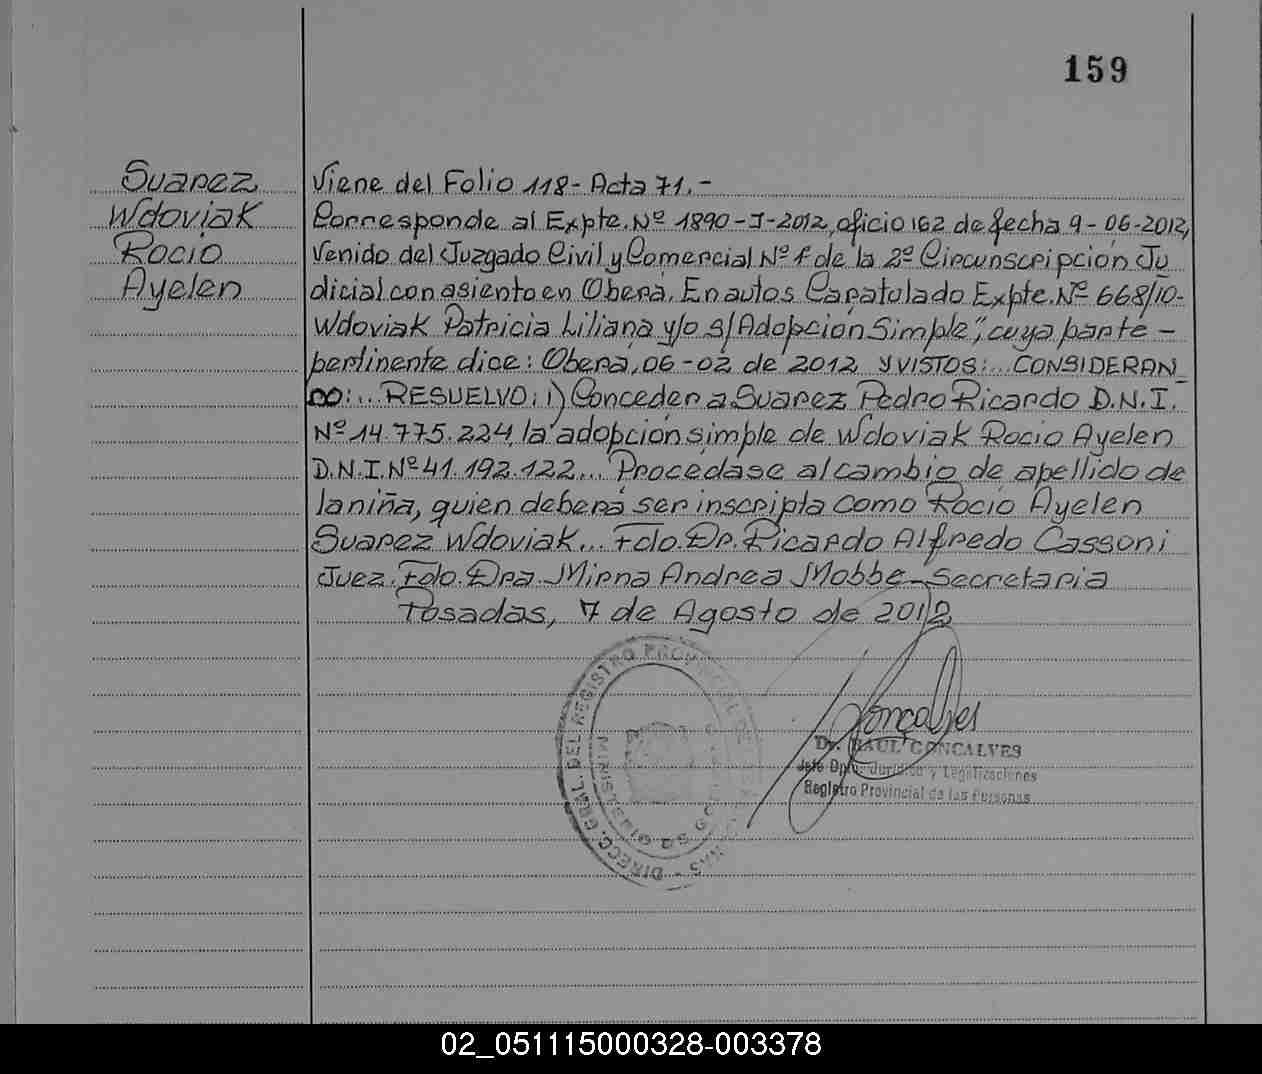 159
Suarez
Wdoviak
Rocio
Ayelen
Viene del Folio 118- Acta 71.-
Corresponde al Expte. Nº 1890-J-2012, oficio 162 de fecha 9-06-2012,
Venido del Juzgado Civil y Comercial Nº 1 de la 2º Circunscripción Ju
dicial con asiento en Oberá. En autos Caratulado Expte. Nº 668/10-
Wdoviak Patricia Liliana y/o s/Adopción Simple", cuya parte -
pertinente dice: Oberá, 06-02 de 2012 Y VISTOS:... CONSIDERAN
DO:... RESUELVO: 1) Conceder a Suarez Pedro Ricardo D.N.I.
Nº 14.775.224, la adopción simple de Wdoviak Rocio Ayelen
D.N.I. Nº 41.192.122... Procédase al cambio de apellido de
la niña, quien deberá ser inscripta como Rocio Ayelen
Suarez Wdoviak... Fdo. Dr. Ricardo Alfredo Cassoni
Juez. Fdo. Dra. Mirna Andrea Mobbe- Secretaria
Posadas, 7 de Agosto de 2012
DIRECC. GRAL. DEL REGISTRO PROVINCIAL DE LAS PERSONAS -
MINISTERIO DE GOBIERNO
Goncalves
Dr. RAUL GONCALVES
Jefe Dpto. Jurídico y Legalizaciones
Registro Provincial de las Personas
02_051115000328-003378